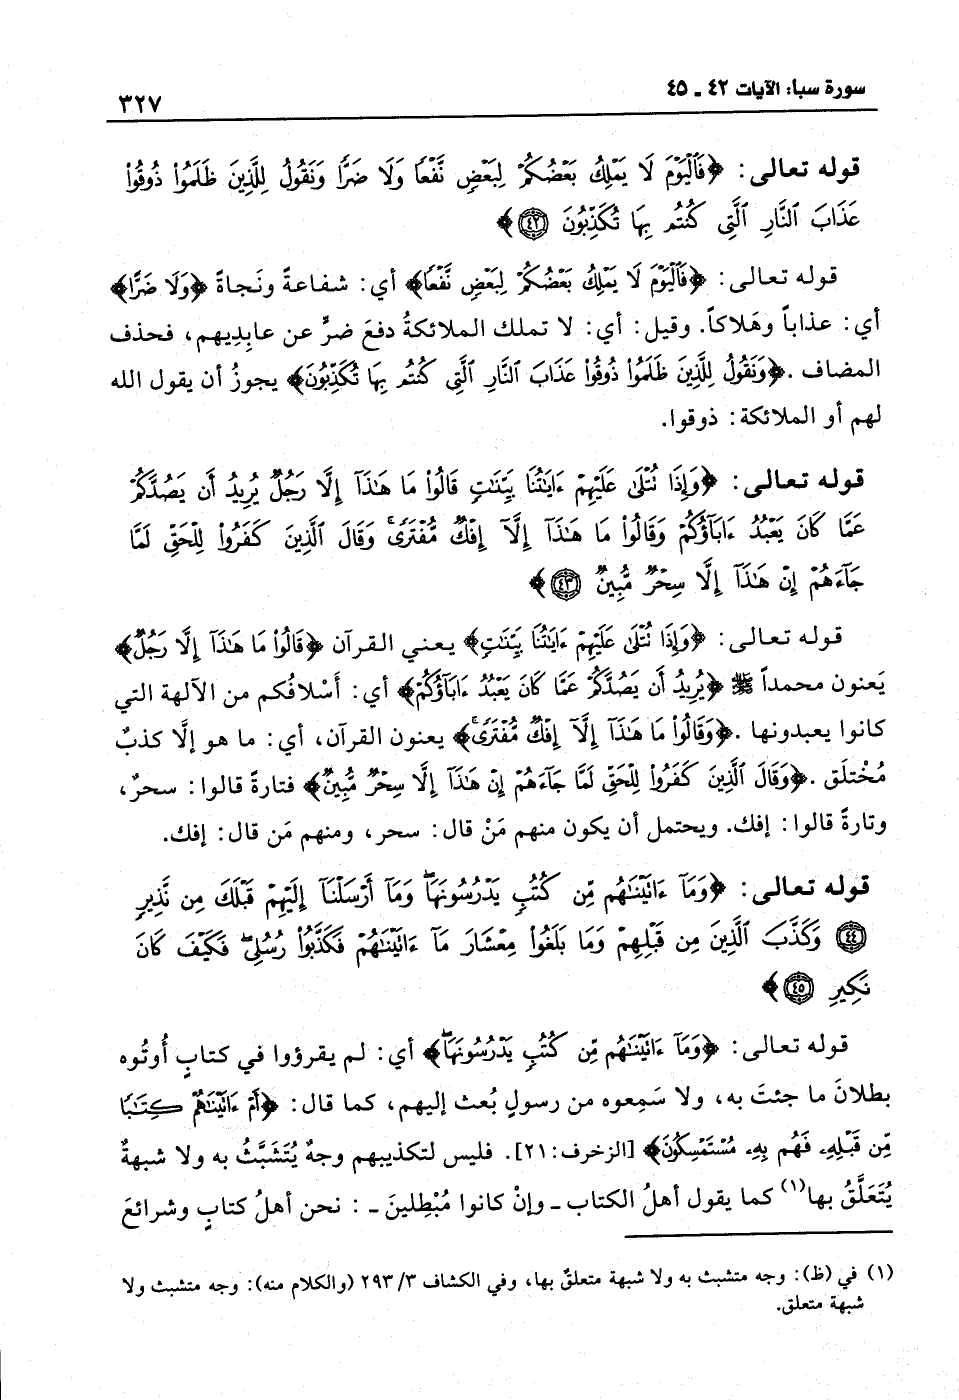 سورة سبأ: الآيات ٤٢ ـ ٤٥
٣٢٧
قوله تعالى: ﴿فَٱلْيَوْمَ لَا يَمْلِكُ بَعْضُكُمْ لِبَعْضٍ نَّفْعًا وَلَا ضَرًّا وَنَقُولُ لِلَّذِينَ ظَلَمُوا۟ ذُوقُوا۟
عَذَابَ ٱلنَّارِ ٱلَّتِى كُنتُم بِهَا تُكَذِّبُونَ ٤٢﴾
قوله تعالى: ﴿فَٱلْيَوْمَ لَا يَمْلِكُ بَعْضُكُمْ لِبَعْضٍ نَّفْعًا﴾ أي: شفاعةً ونَجاةً ﴿وَلَا ضَرًّا﴾
أي: عذاباً وهَلاكاً. وقيل: أي: لا تملك الملائكةُ دفعَ ضرٍّ عن عابِدِيهم، فحذف
المضاف. ﴿وَنَقُولُ لِلَّذِينَ ظَلَمُوا۟ ذُوقُوا۟ عَذَابَ ٱلنَّارِ ٱلَّتِى كُنتُم بِهَا تُكَذِّبُونَ﴾ يجوزُ أن يقول الله
لهم أو الملائكة: ذوقوا.
قوله تعالى: ﴿وَإِذَا تُتْلَىٰ عَلَيْهِمْ ءَايَٰتُنَا بَيِّنَٰتٍ قَالُوا۟ مَا هَٰذَآ إِلَّا رَجُلٌ يُرِيدُ أَن يَصُدَّكُمْ
عَمَّا كَانَ يَعْبُدُ ءَابَآؤُكُمْ وَقَالُوا۟ مَا هَٰذَآ إِلَّآ إِفْكٌ مُّفْتَرًى ۚ وَقَالَ ٱلَّذِينَ كَفَرُوا۟ لِلْحَقِّ لَمَّا
جَآءَهُمْ إِنْ هَٰذَآ إِلَّا سِحْرٌ مُّبِينٌ ٤٣﴾
قوله تعالى: ﴿وَإِذَا تُتْلَىٰ عَلَيْهِمْ ءَايَٰتُنَا بَيِّنَٰتٍ﴾ يعني القرآن ﴿قَالُوا۟ مَا هَٰذَآ إِلَّا رَجُلٌ﴾
يَعنون محمداً ﷺ ﴿يُرِيدُ أَن يَصُدَّكُمْ عَمَّا كَانَ يَعْبُدُ ءَابَآؤُكُمْ﴾ أي: أَسْلافُكم من الآلهة التي
كانوا يعبدونها. ﴿وَقَالُوا۟ مَا هَٰذَآ إِلَّآ إِفْكٌ مُّفْتَرًى ۚ﴾ يعنون القرآن، أي: ما هو إلَّا كذبٌ
مُخْتلَق. ﴿وَقَالَ ٱلَّذِينَ كَفَرُوا۟ لِلْحَقِّ لَمَّا جَآءَهُمْ إِنْ هَٰذَآ إِلَّا سِحْرٌ مُّبِينٌ﴾ فتارةً قالوا: سحرٌ،
وتارةً قالوا: إفك. ويحتمل أن يكون منهم مَنْ قال: سحر، ومنهم مَن قال: إفك.
قوله تعالى: ﴿وَمَآ ءَاتَيْنَٰهُم مِّن كُتُبٍ يَدْرُسُونَهَا ۖ وَمَآ أَرْسَلْنَآ إِلَيْهِمْ قَبْلَكَ مِن نَّذِيرٍ
٤٤ وَكَذَّبَ ٱلَّذِينَ مِن قَبْلِهِمْ وَمَا بَلَغُوا۟ مِعْشَارَ مَآ ءَاتَيْنَٰهُمْ فَكَذَّبُوا۟ رُسُلِى ۖ فَكَيْفَ كَانَ
نَكِيرِ ٤٥﴾
قوله تعالى: ﴿وَمَآ ءَاتَيْنَٰهُم مِّن كُتُبٍ يَدْرُسُونَهَا ۖ﴾ أي: لم يقرؤوا في كتابٍ أُوتُوه
بطلانَ ما جئتَ به، ولا سَمِعوه من رسولٍ بُعث إليهم، كما قال: ﴿أَمْ ءَاتَيْنَٰهُمْ كِتَٰبًا
مِّن قَبْلِهِۦ فَهُم بِهِۦ مُسْتَمْسِكُونَ﴾ [الزخرف: ٢١]. فليس لتكذيبهم وجهٌ يُتَشَبَّثُ به ولا شبهةٌ
يُتَعَلَّقُ بها(١) كما يقول أهلُ الكتاب ـ وإنْ كانوا مُبْطِلينَ ـ : نحن أهلُ كتابٍ وشرائعَ
(١) في (ظ): وجه متشبث به ولا شبهة متعلقٌ بها، وفي الكشاف ٢٩٣/٣ (والكلام منه): وجه متشبث ولا
شبهة متعلق.